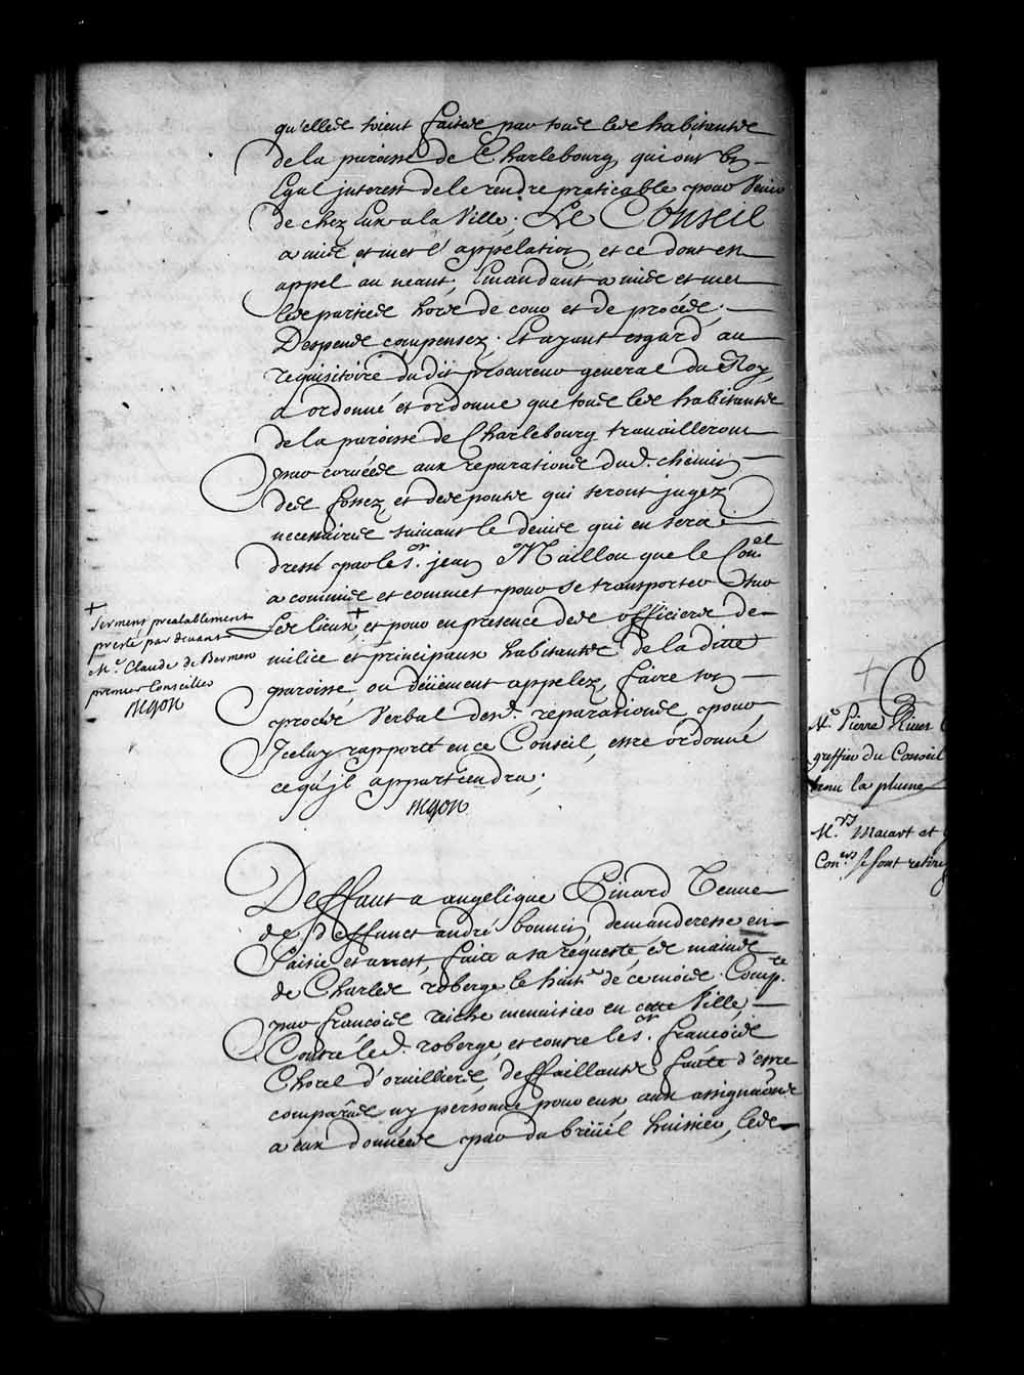 qu'elles soient faites par tous les habitants
de la paroisse de Charlebourg, qui ont un
Egal interest de le rendre praticable pour Venir
de chez Eux a la Ville; Le Conseil
a mis et met l'appelation, et ce dont est
appel au neant; Emandant a mis et met
les parties hors de cour et de procés;
Despens compensez. Et ayant esgard au
requisitoire du dit procureur general du Roy,
a ordonné et ordonne que tous les habitants
de la paroisse de Charlebourg travailleront
par corvées aux reparations dud. chemin,
des fossez, et des ponts qui seront jugez
necessaires suivant le devis qui en sera
dressé par le Sr. jean Maillou que le Conel
a commis et commet pour se transporter sur
Les lieux + et pour en presence des officiers de
milice et principaux habitants de la ditte
paroisse, ou düement appelez, faire son
procés Verbal desd. reparations, pour,
Iceluy rapporté en ce Conseil, estre ordonné
ce qu'il appartiendra;
Begon
+
serment prealablement
presté par devant
Me. Claude de Bermen
premier Conseiller
Begon
Deffaut a angelique Pinard Veuve
de deffunct andré bonnin, demanderesse en
Saisie et arrest, faite a sa requeste, és mains
de Charles roberge le huit e de ce mois. Comp. te
par francois reiche menuisier en cette Ville,
Contre led. roberge, et contre le Sr. francois
Chorel d'orvilliers, deffaillants faute d'estre
comparus ny personne pour eux, aux assignaõns
a eux données par du breüil huissier, les
Me. Pierre Rivet
greffier du Conseil
tenu la plume
Mrs. Macart et
Coners. se sont retirez